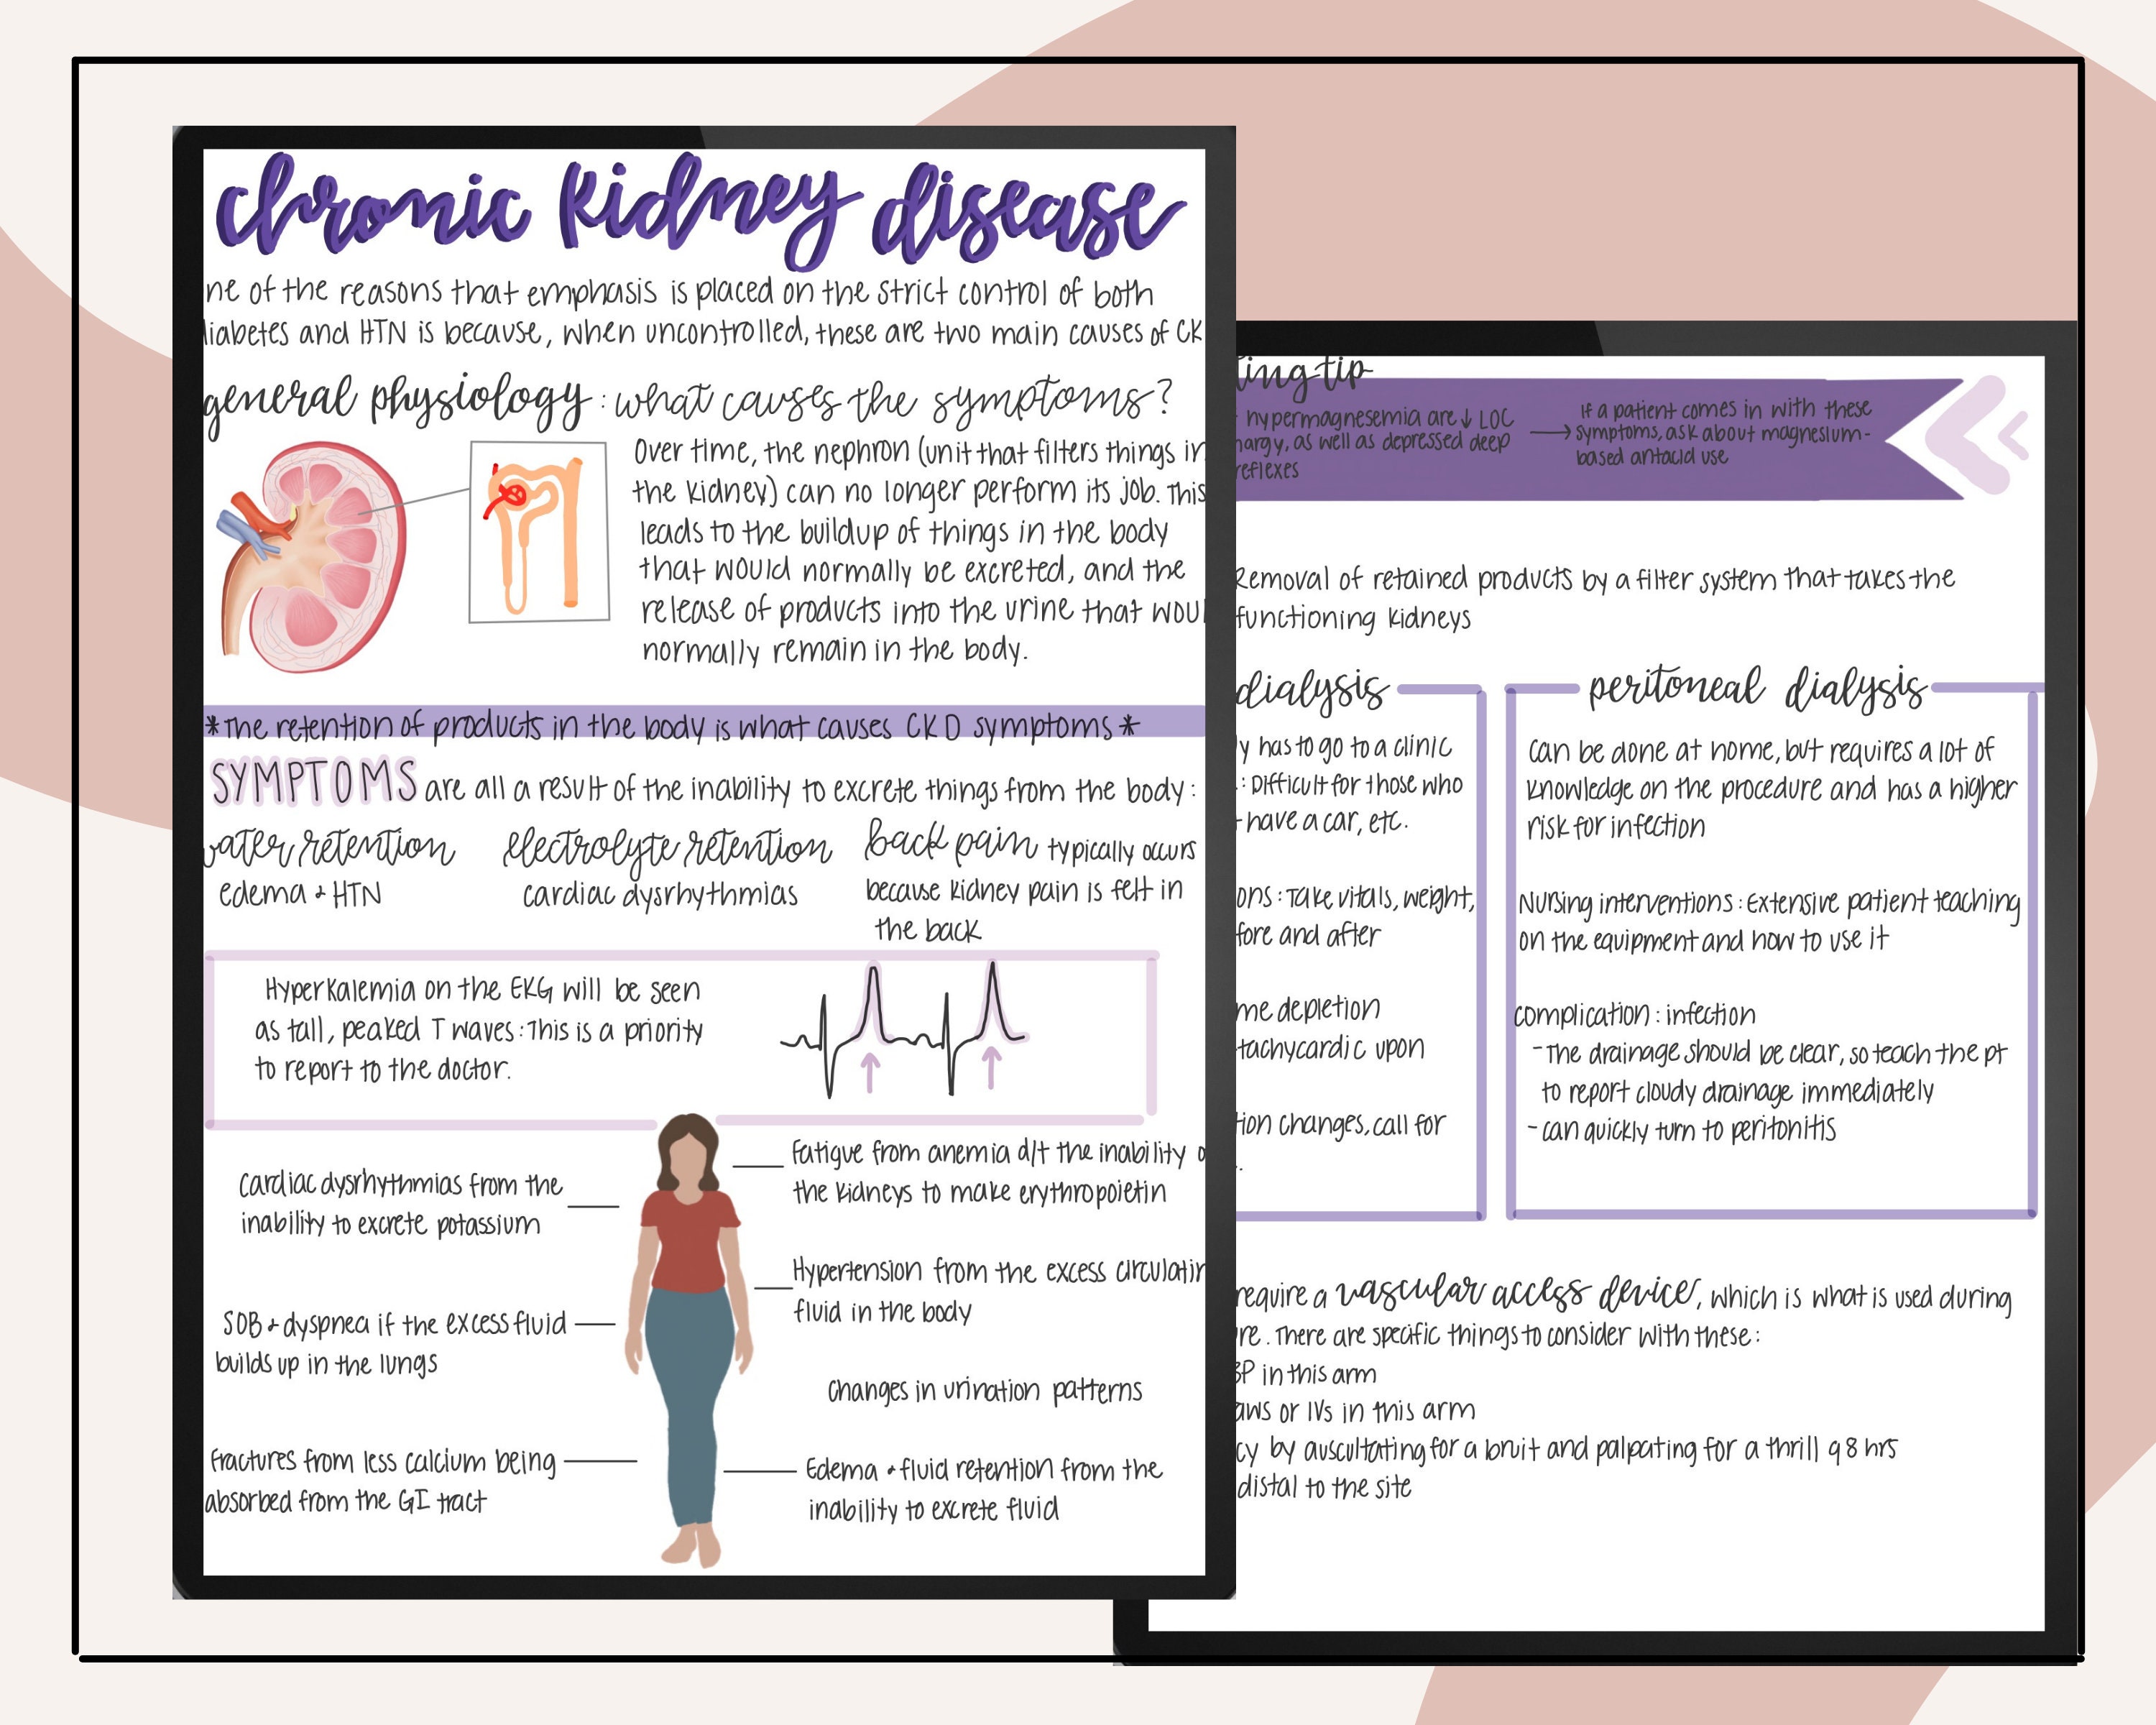 chronic kidney disease
ne of the reasons that emphasis is placed on the strict control of both
iabetes and HTN is because, when uncontrolled, these are two main causes of CK
general physiology: what causes the symptoms?
Over time, the nephron (unit that filters things in
the kidney) can no longer perform its job. This
leads to the buildup of things in the body
that would normally be excreted, and the
release of products into the urine that woul
normally remain in the body.
*The retention of products in the body is what causes CKD symptoms*
SYMPTOMS are all a result of the inability to excrete things from the body:
water retention
edema & HTN
electrolyte retention
cardiac dysrhythmias
back pain typically occurs
because kidney pain is felt in
the back
Hyperkalemia on the EKG will be seen
as tall, peaked T waves: This is a priority
to report to the doctor.
Cardiac dysrhythmias from the
inability to excrete potassium
SOB & dyspnea if the excess fluid
builds up in the lungs
Fractures from less calcium being
absorbed from the GI tract
Fatigue from anemia d/t the inability o
the kidneys to make erythropoietin
Hypertension from the excess circulatin
fluid in the body
Changes in urination patterns
Edema & fluid retention from the
inability to excrete fluid
ting tip
hypermagnesemia are ↓ LOC
hargy, as well as depressed deep
reflexes
→ If a patient comes in with these
symptoms, ask about magnesium-
based antacid use
Removal of retained products by a filter system that takes the
functioning kidneys
dialysis
y has to go to a clinic
: Difficult for those who
have a car, etc.
ons: Take vitals, weight,
fore and after
me depletion
tachycardic upon
tion changes, call for
peritoneal dialysis
Can be done at home, but requires a lot of
knowledge on the procedure and has a higher
risk for infection
Nursing interventions: Extensive patient teaching
on the equipment and how to use it
complication: infection
- The drainage should be clear, so teach the pt
to report cloudy drainage immediately
- can quickly turn to peritonitis
require a vascular access device, which is what is used during
re. There are specific things to consider with these:
BP in this arm
aws or IVs in this arm
cy by auscultating for a bruit and palpating for a thrill q 8 hrs
distal to the site